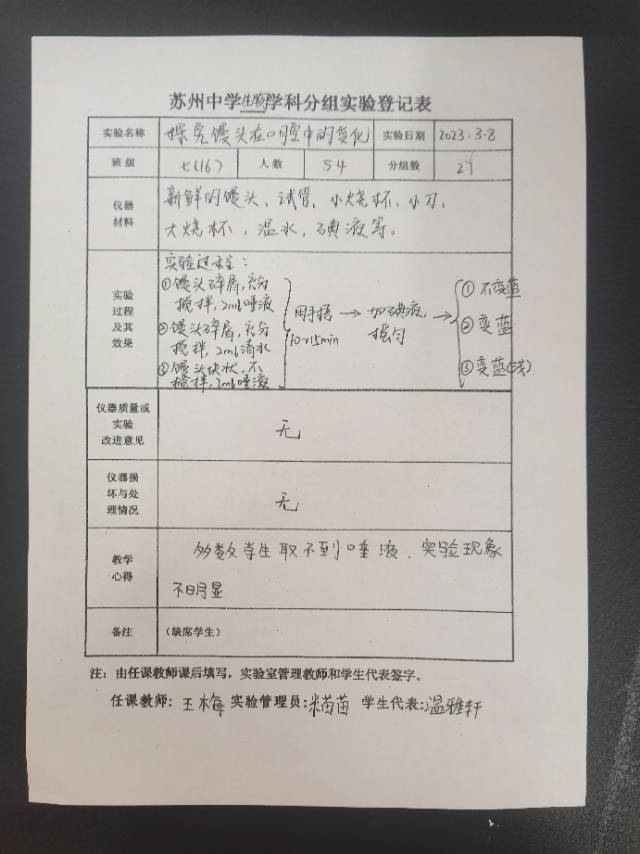 苏州中学生物学科分组实验登记表
实验名称 探究馒头在口腔中的变化 实验日期 2023.3.8
班级 七(16) 人数 54 分组数 27
仪器材料 新鲜的馒头、试管、小烧杯、小刀、
大烧杯，温水，碘液等。
实验过程及其效果
实验过程：
①馒头碎屑，充分
搅拌，2ml唾液
②馒头碎屑，充分
搅拌，2ml清水
③馒头块状，不
搅拌，2ml唾液
用手捂
10~15min
→ 加碘液，
摇匀
→ ①不变蓝
②变蓝
③变蓝(浅)
仪器质量或实验改进意见 无
仪器损坏与处理情况 无
教学心得 多数学生取不到唾液，实验现象
不明显
备注 （缺席学生）
注：由任课教师课后填写，实验室管理教师和学生代表签字。
任课教师：王梅 实验管理员：米苗苗 学生代表：温雅轩